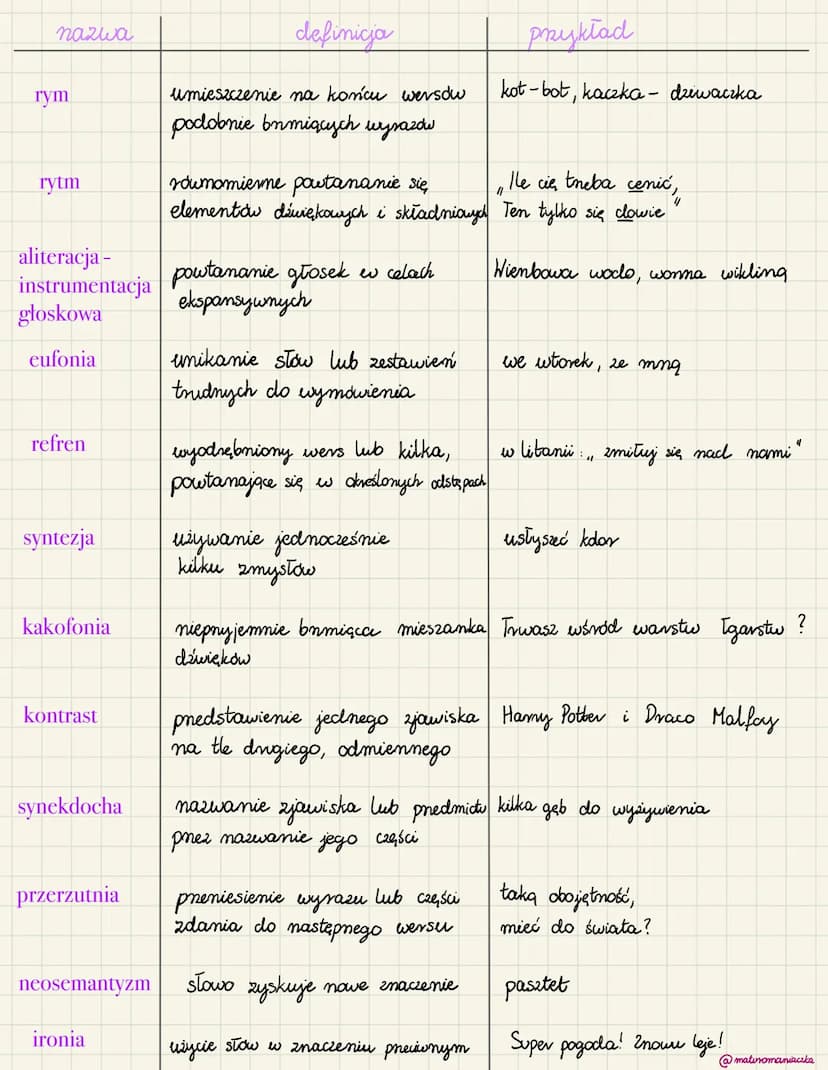 nazwa definicja przykład
rym umieszczenie na końcu wersów kot-bot, kaczka - dziwaczka
podobnie brzmiących wyrazów
rytm równomierne powtarzanie się „Ile cię trzeba cenić,
elementów dźwiękowych i składniowych Ten tylko się dowie"
aliteracja -
instrumentacja powtarzanie głosek w celach Wierzbowa wodo, wonna wikliną
głoskowa ekspansywnych
eufonia unikanie słów lub zestawień we wtorek, ze mną
trudnych do wymówienia
refren wyodrębniony wers lub kilka, w litanii: „zmiłuj się nad nami"
powtarzające się w określonych odstępach
syntezja używanie jednocześnie usłyszeć kolor
kilku zmysłów
kakofonia nieprzyjemnie brzmiąca mieszanka Trwasz wśród warstw łgarstw?
dźwięków
kontrast przedstawienie jednego zjawiska Harry Potter i Draco Malfoy
na tle drugiego, odmiennego
synekdocha nazwanie zjawiska lub przedmiotu kilka gęb do wyżywienia
przez nazwanie jego części
przerzutnia przeniesienie wyrazu lub części taką obojętność,
zdania do następnego wersu mieć do świata?
neosemantyzm słowo zyskuje nowe znaczenie pasztet
ironia użycie słów w znaczeniu przeciwnym Super pogoda! Znowu leje!
@malinomaniaczka